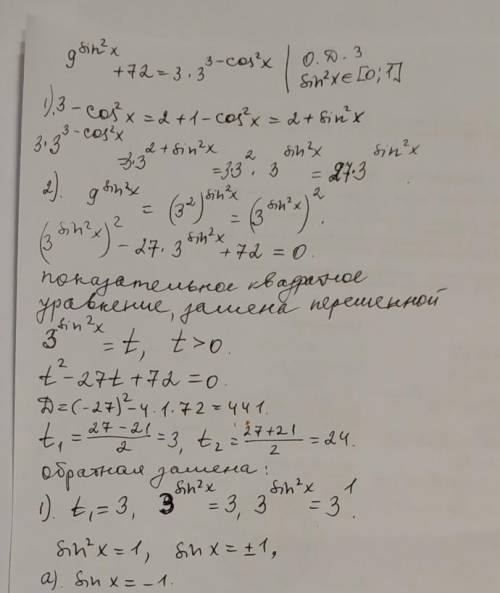 9^{sin²x} + 72 = 3·3^{3-cos²x} | О.Д.З
sin²x ∈ [0; 1]
1). 3 - cos²x = 2 + 1 - cos²x = 2 + sin²x
3·3^{3-cos²x} = 3·3^{2+sin²x} = 3·3²·3^{sin²x} = 27·3^{sin²x}
2). 9^{sin²x} = (3²)^{sin²x} = (3^{sin²x})².
(3^{sin²x})² - 27·3^{sin²x} + 72 = 0.
показательное квадратное
уравнение, замена переменной
3^{sin²x} = t, t > 0.
t² - 27t + 72 = 0.
D = (-27)² - 4·1·72 = 441.
t₁ = \frac{27-21}{2} = 3, t₂ = \frac{27+21}{2} = 24.
обратная замена:
1). t₁ = 3, 3^{sin²x} = 3, 3^{sin²x} = 3¹.
sin²x = 1, sin x = ±1,
а). sin x = -1.